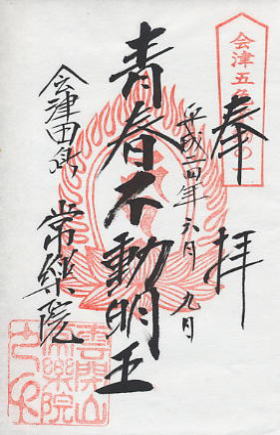 奉拝
会津五色
の一
平成二四年六月九日
青春不動明王
会津田島 常楽院
雲開山
常楽院